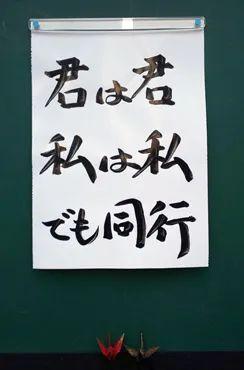 君は君
私は私
でも同行